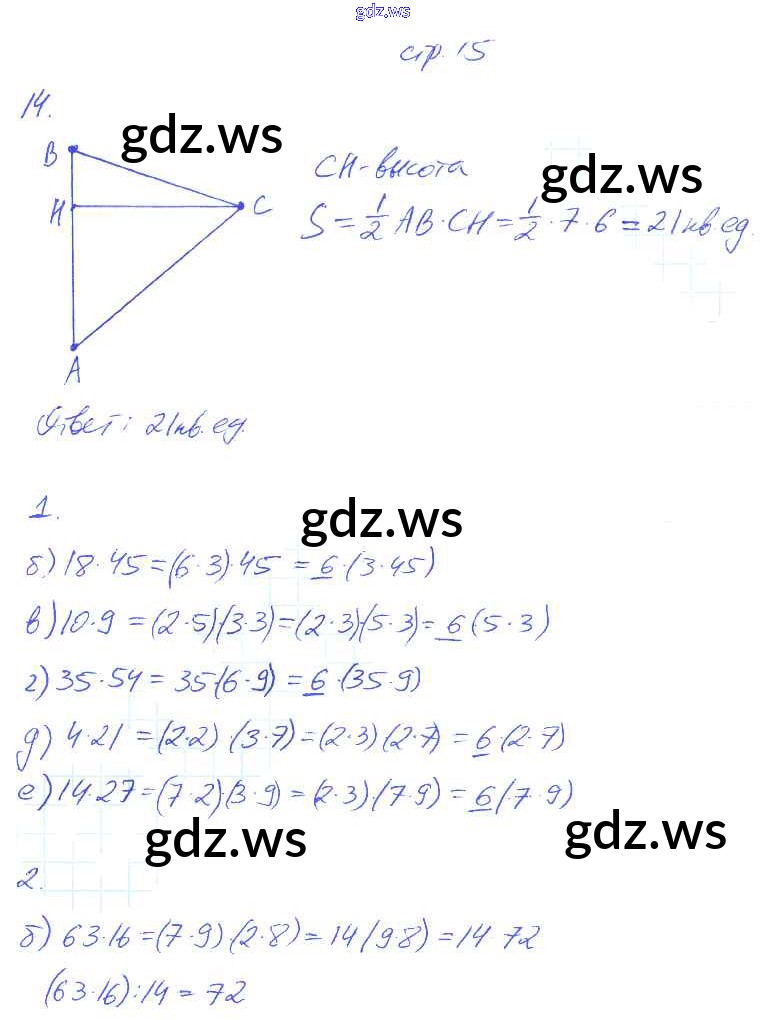 gdz.ws
стр. 15
14.
gdz.ws
B
CH - высота
gdz.ws
H
C
S = 1/2 AB · CH = 1/2 · 7 · 6 = 21 кв. ед.
A
Ответ: 21 кв. ед.
1.
gdz.ws
б) 18 · 45 = (6 · 3) · 45 = 6 · (3 · 45)
в) 10 · 9 = (2 · 5)(3 · 3) = (2 · 3)(5 · 3) = 6 (5 · 3)
г) 35 · 54 = 35 · (6 · 9) = 6 · (35 · 9)
д) 4 · 21 = (2 · 2) · (3 · 7) = (2 · 3) (2 · 7) = 6 · (2 · 7)
е) 14 · 27 = (7 · 2) · (3 · 9) = (2 · 3) (7 · 9) = 6 (7 · 9)
gdz.ws
gdz.ws
2.
б) 63 · 16 = (7 · 9) · (2 · 8) = 14 (9 · 8) = 14 72
(63 · 16) : 14 = 72